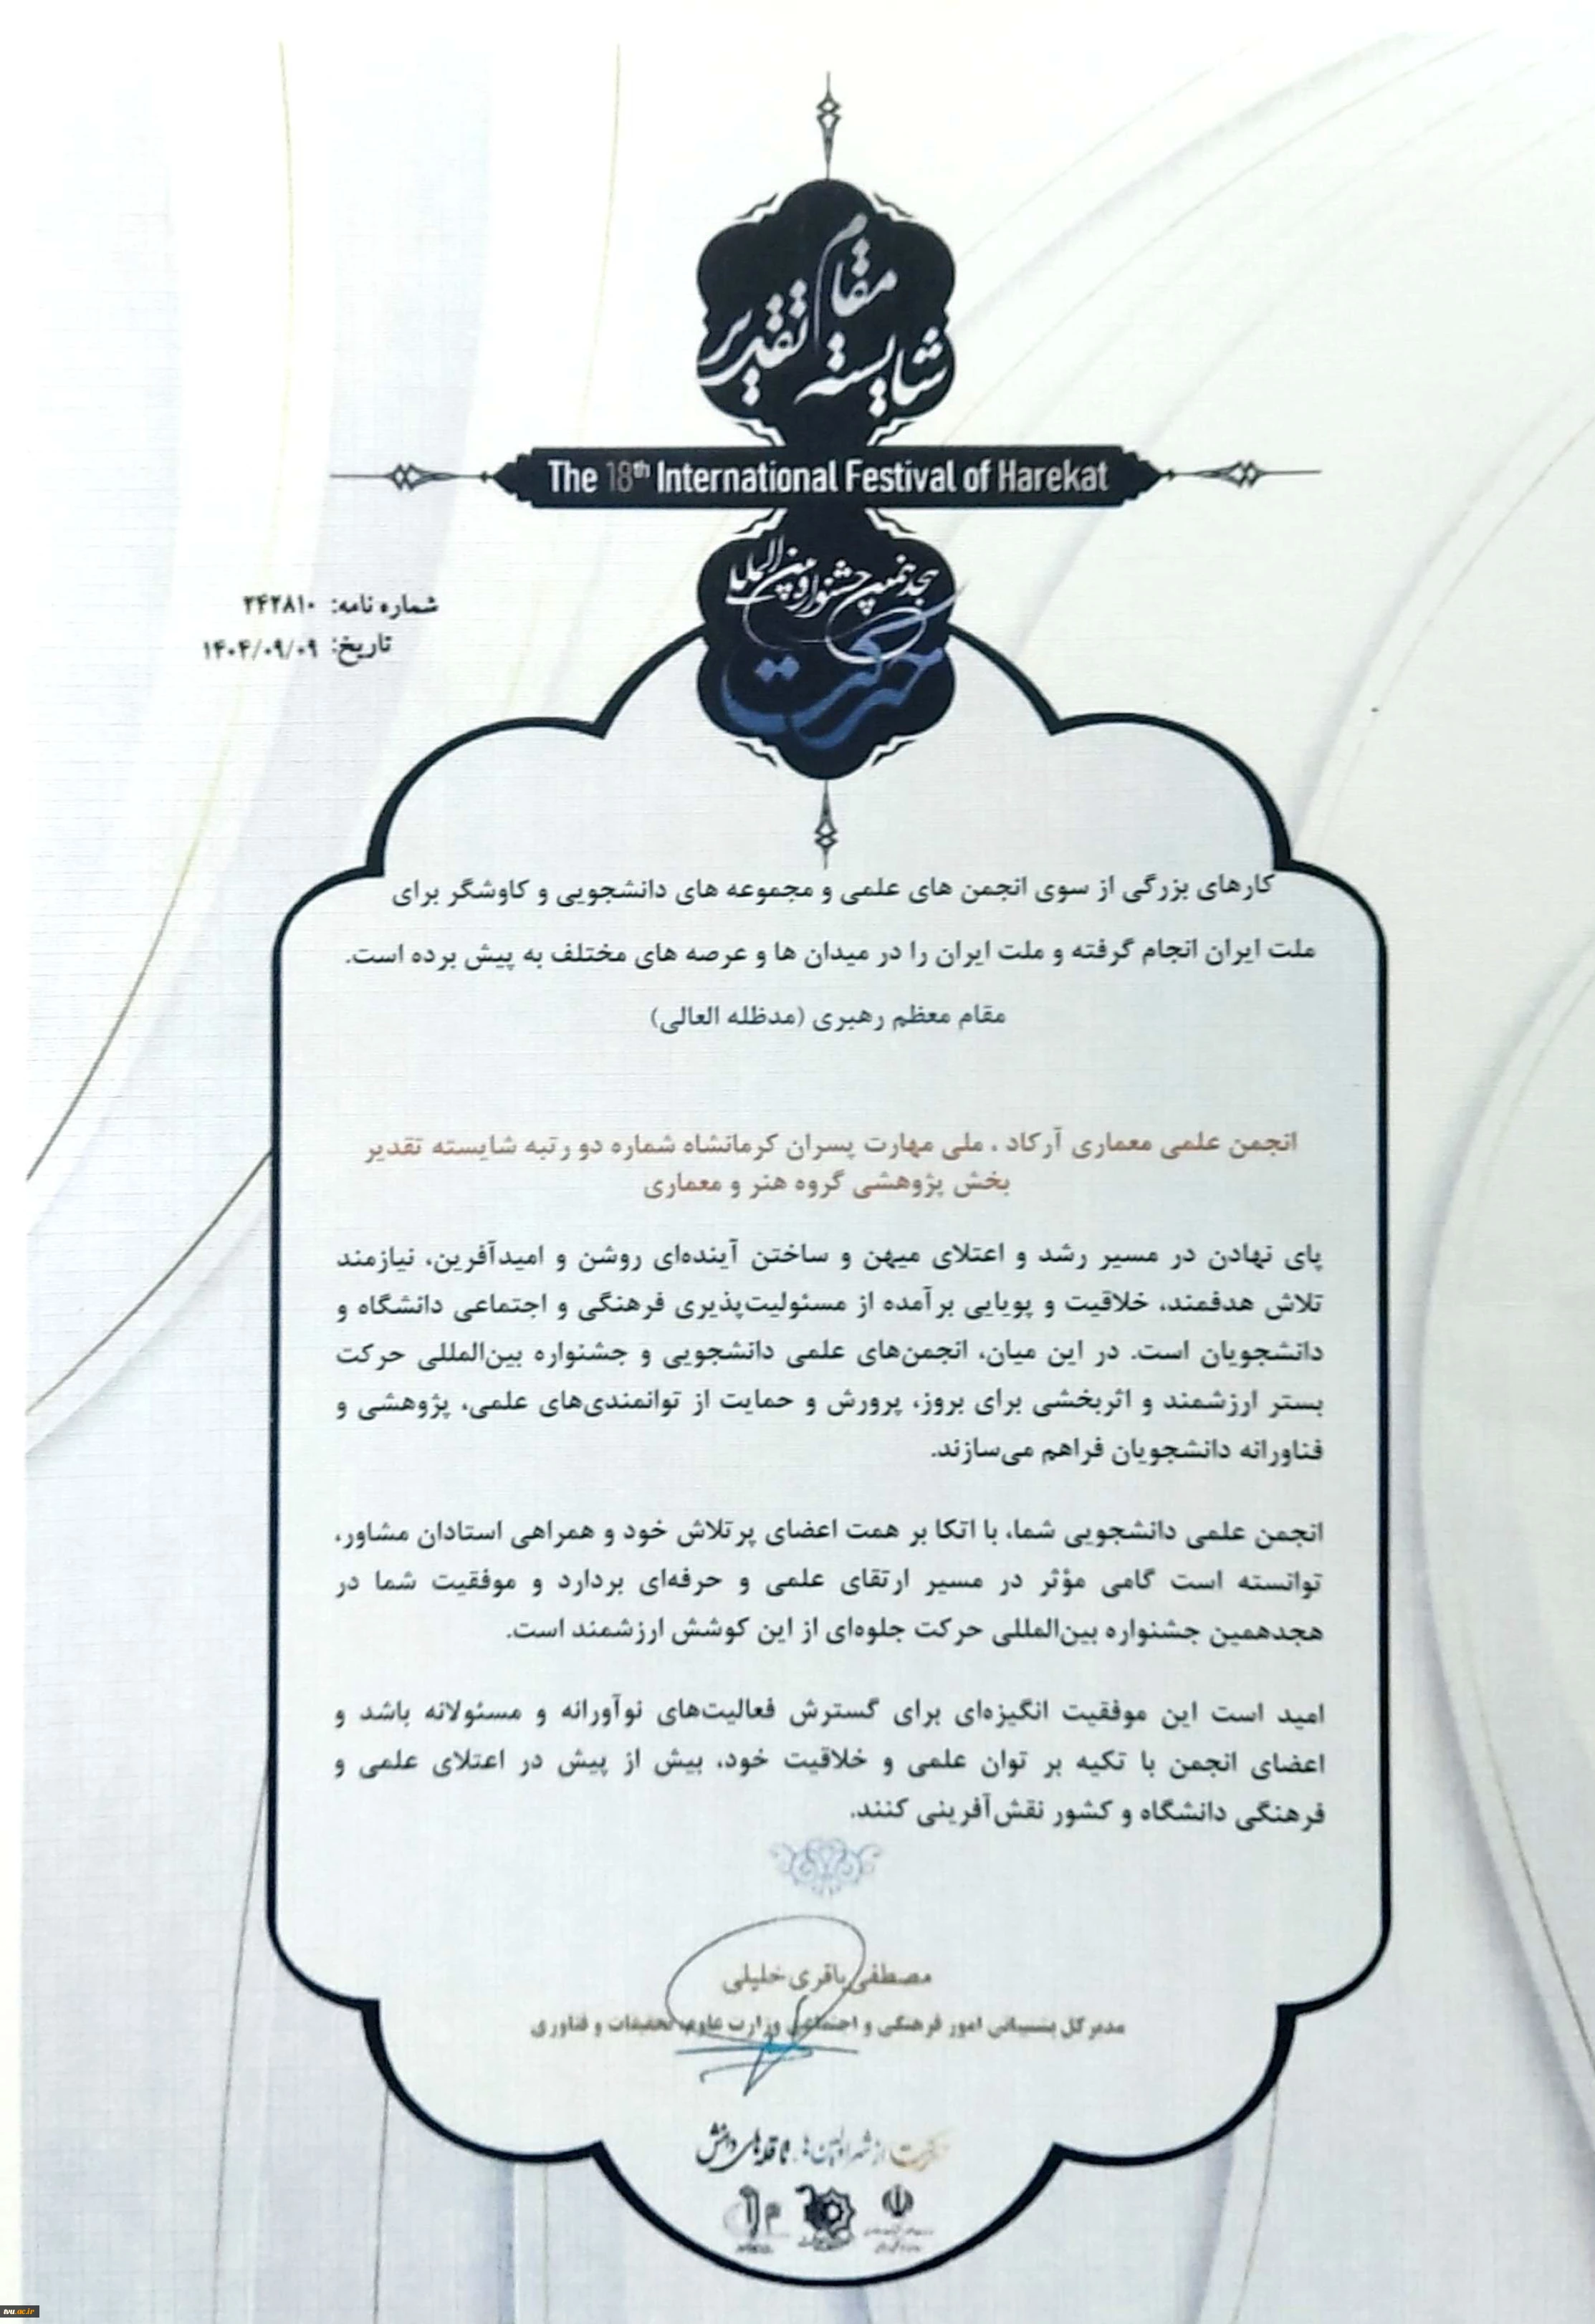 مقام
شایسته تقدیر
The 18th International Festival of Harekat
هجدهمین جشنواره بین‌المللی
حرکت
شماره نامه: ۲۴۲۸۱۰
تاریخ: ۱۴۰۴/۰۹/۰۹
کارهای بزرگی از سوی انجمن های علمی و مجموعه های دانشجویی و کاوشگر برای
ملت ایران انجام گرفته و ملت ایران را در میدان ها و عرصه های مختلف به پیش برده است.
مقام معظم رهبری (مدظله العالی)
انجمن علمی معماری آرکاد ، ملی مهارت پسران کرمانشاه شماره دو رتبه شایسته تقدیر
بخش پژوهشی گروه هنر و معماری
پای نهادن در مسیر رشد و اعتلای میهن و ساختن آینده‌ای روشن و امیدآفرین، نیازمند
تلاش هدفمند، خلاقیت و پویایی برآمده از مسئولیت‌پذیری فرهنگی و اجتماعی دانشگاه و
دانشجویان است. در این میان، انجمن‌های علمی دانشجویی و جشنواره بین‌المللی حرکت
بستر ارزشمند و اثربخشی برای بروز، پرورش و حمایت از توانمندی‌های علمی، پژوهشی و
فناورانه دانشجویان فراهم می‌سازند.
انجمن علمی دانشجویی شما، با اتکا بر همت اعضای پرتلاش خود و همراهی استادان مشاور،
توانسته است گامی مؤثر در مسیر ارتقای علمی و حرفه‌ای بردارد و موفقیت شما در
هجدهمین جشنواره بین‌المللی حرکت جلوه‌ای از این کوشش ارزشمند است.
امید است این موفقیت انگیزه‌ای برای گسترش فعالیت‌های نوآورانه و مسئولانه باشد و
اعضای انجمن با تکیه بر توان علمی و خلاقیت خود، بیش از پیش در اعتلای علمی و
فرهنگی دانشگاه و کشور نقش‌آفرینی کنند.
مصطفی باقری خلیلی
مدیرکل پشتیبانی امور فرهنگی و اجتماعی وزارت علوم، تحقیقات و فناوری
حرکت از شهر اولین‌ها، تا قله‌های دانش
tvu.ac.ir